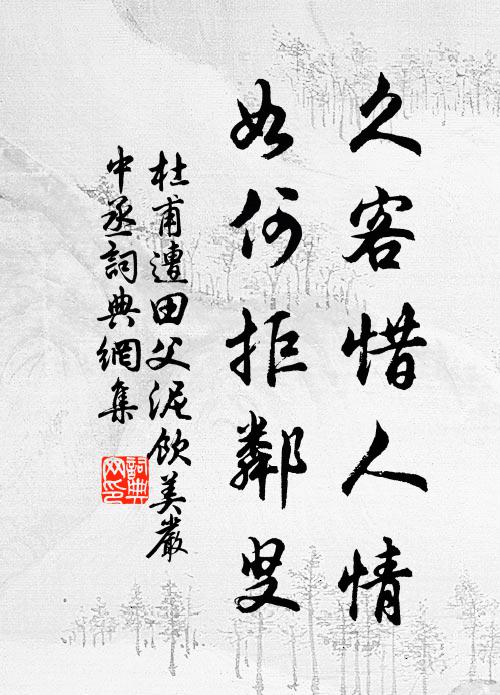 久客惜人情
如何拒鄰叟
杜甫遭田父泥飲美嚴
中丞詞典網集
詞典
网印